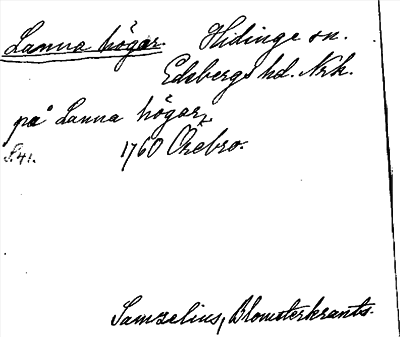 Lanna högar. Hidinge sn.
Edsbergs hd. Nrk.
på Lanna högar,
S.41. 1760 Örebro.
Samzelius, Blomsterkrants.